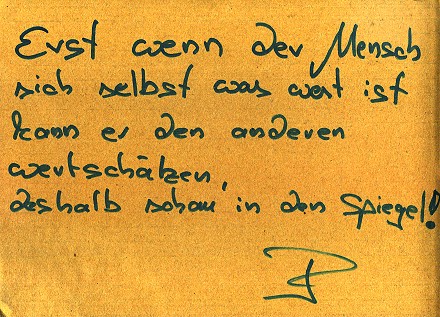 Erst wenn der Mensch
sich selbst was wert ist
kann er den anderen
wertschätzen
deshalb schau' in den Spiegel!